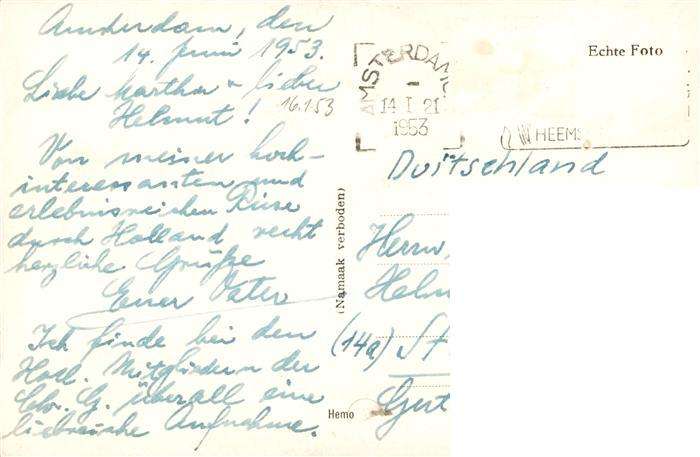 Amsterdam, den
14. Juni 1953.
Liebe Martha + lieber
Helmut!
16.1.53
Von meiner hoch-
interessanten und
erlebnisreichen Reise
durch Holland recht
herzliche Grüße
Euer Vater
Ich finde bei den
Holl. Mitgliedern der
Chr. G. überall eine
liebreiche Aufnahme.
Echte Foto
AMSTERDAM
14 I 21
1953
HEEMS
Duitschland
Herrn
Helm
(14a) St
Gert
(Namaak verboden)
Hemo